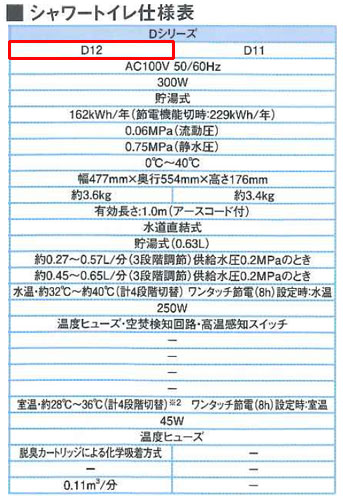 ■ シャワートイレ仕様表
Dシリーズ
D12 D11
AC100V 50/60Hz
300W
貯湯式
162kWh/年(節電機能切時:229kWh/年)
0.06MPa(流動圧)
0.75MPa(静水圧)
0℃～40℃
幅477mm×奥行554mm×高さ176mm
約3.6kg 約3.4kg
有効長さ:1.0m(アースコード付)
水道直結式
貯湯式(0.63L)
約0.27～0.57L/分(3段階調節)供給水圧0.2MPaのとき
約0.45～0.65L/分(3段階調節)供給水圧0.2MPaのとき
水温・約32℃～約40℃(計4段階切替) ワンタッチ節電(8h)設定時:水温
250W
温度ヒューズ・空焚検知回路・高温感知スイッチ
－
－
－
－
室温・約28℃～36℃(計4段階切替)※2 ワンタッチ節電(8h)設定時:室温
45W
温度ヒューズ
脱臭カートリッジによる化学吸着方式 －
－ －
0.11m³/分 －